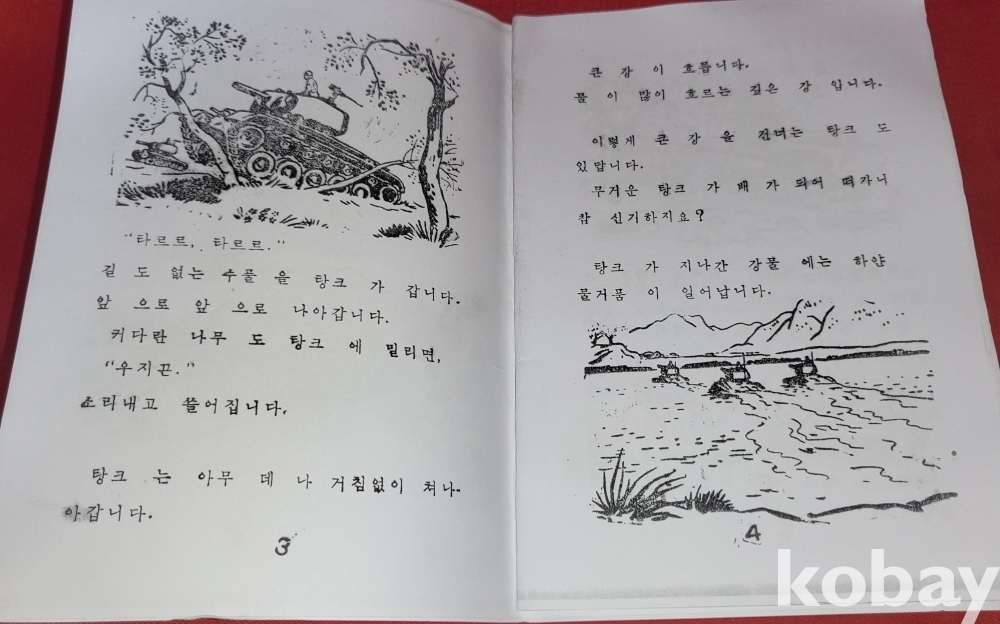 “타르르, 타르르.”
길 도 없는 수풀 을 탕크 가 갑니다.
앞 으로 앞 으로 나아갑니다.
커다란 나무 도 탕크 에 밀리면,
“우지끈.”
소리내고 쓸어집니다.
탕크 는 아무 데 나 거침없이 쳐나
아갑니다.
3
큰 강 이 흐릅니다.
물 이 많이 흐르는 깊은 강 입니다.
이렇게 큰 강 을 건너는 탕크 도
있답니다.
무거운 탕크 가 배 가 되어 떠가니
참 신기하지요?
탕크 가 지나간 강물 에는 하얀
물거품 이 일어납니다.
4
kobay